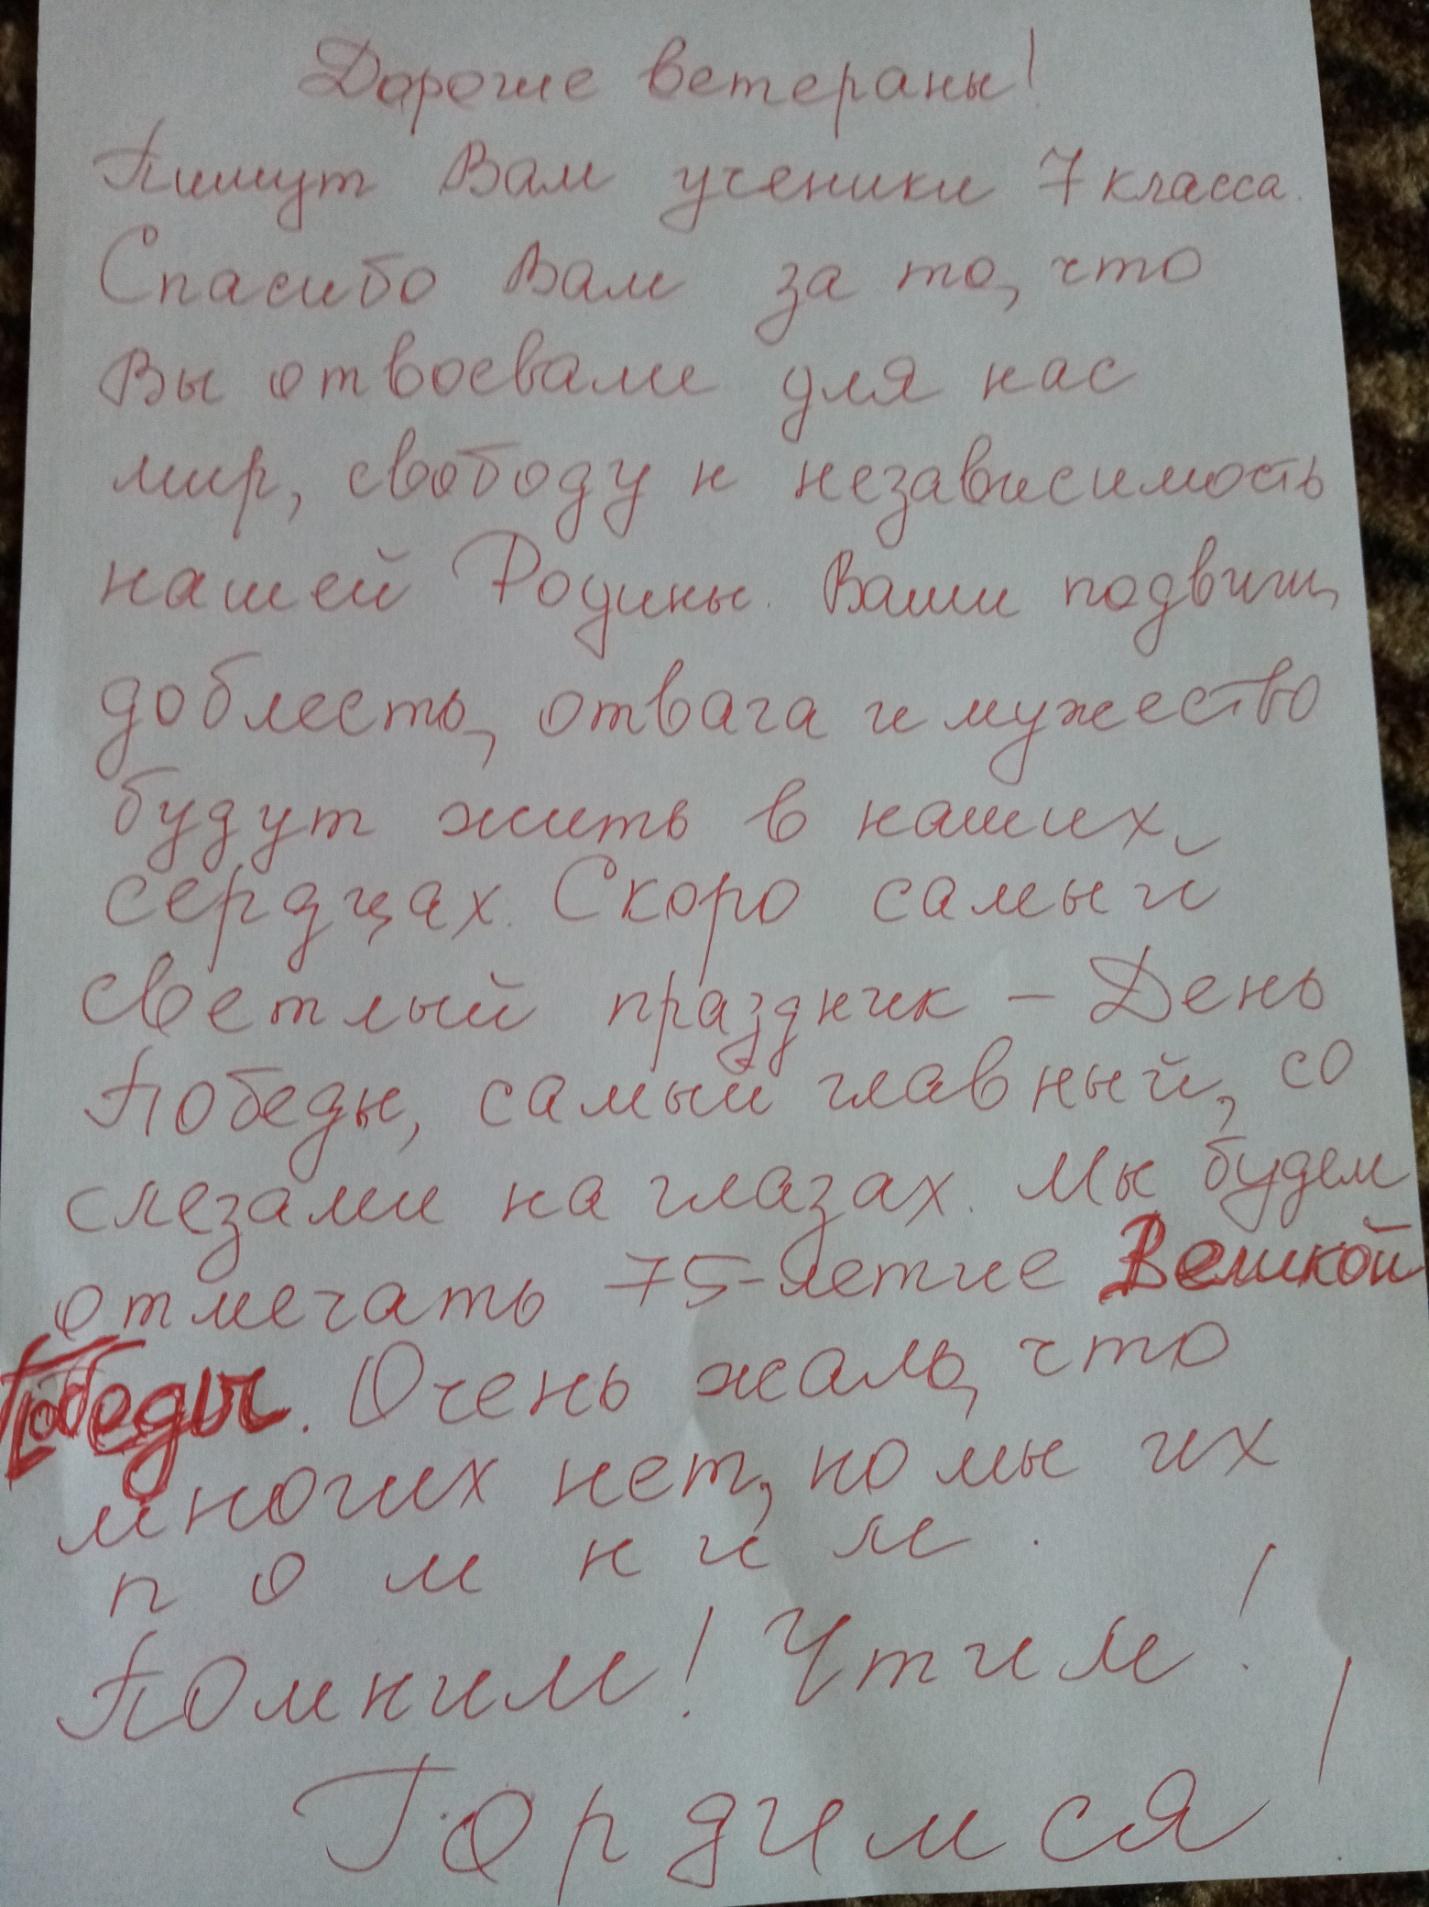 Дорогие ветераны!
Пишут Вам ученики 7 класса.
Спасибо Вам за то, что
Вы отвоевали для нас
мир, свободу и независимость
нашей Родины. Ваши подвиги,
доблесть, отвага и мужество
будут жить в наших
сердцах. Скоро самый
светлый праздник – День
Победы, самый главный, со
слезами на глазах. Мы будем
отмечать 75-летие Великой
Победы. Очень жаль, что
многих нет, но мы их
помним.
Помним! Чтим!
Гордимся!